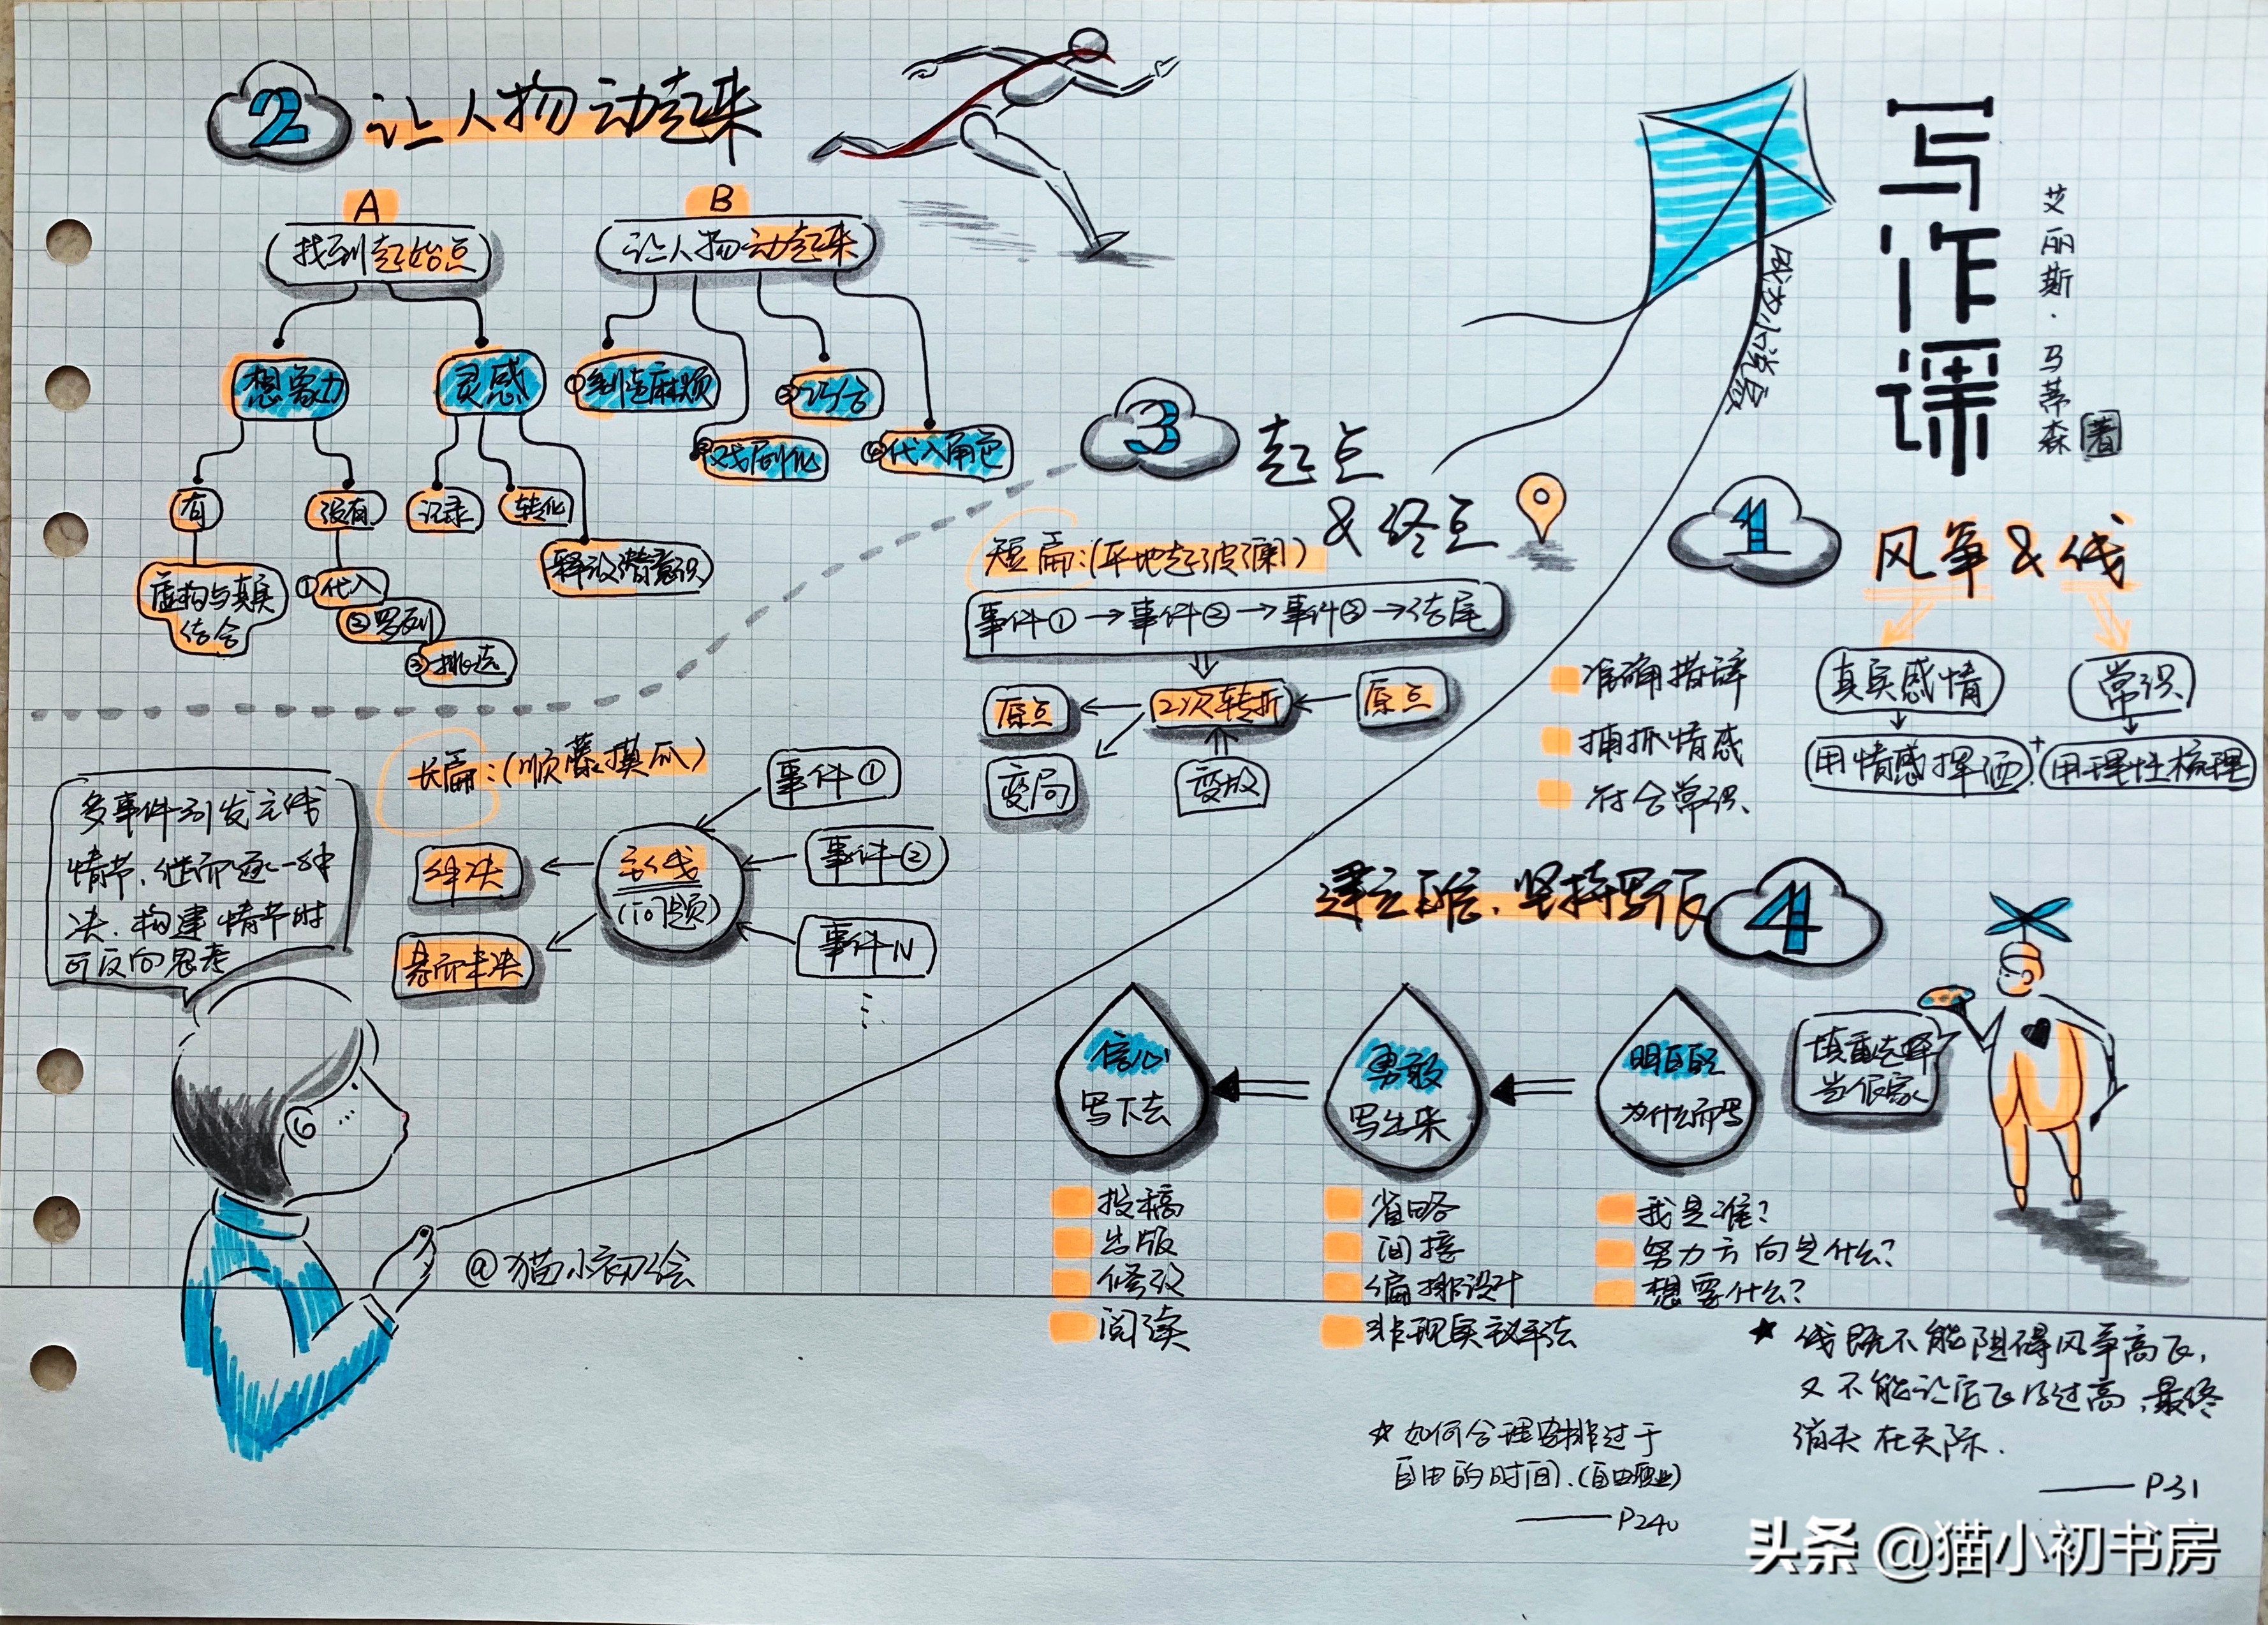 写作课
艾丽斯·马蒂森 著
成为小说家
1
风筝&线
真实感情
常识
用情感挥洒
+
用理性梳理
准确措辞
捕抓情感
符合常识
2
让人物动起来
A
找到起始点
想象力
灵感
有
没有
记录
转化
释放潜意识
虚构与真实
结合
①代入
②罗列
③挑选
B
让人物动起来
①制造麻烦
②戏剧化
③巧合
④代入角色
3
起点
&终点
短篇:(平地起波澜)
事件①→事件②→事件③→结尾
原点
2次转折
原点
变局
变故
长篇:(顺藤摸瓜)
事件①
事件②
事件N
主线
(问题)
解决
悬而未决
多事件引发主线
情节,继而逐一解
决,构建情节时
可反向思考
4
建立自信,坚持写作
慎重选择
当作家
明白自己
为什么而写
勇敢
写出来
信心
写下去
我是谁?
努力方向是什么?
想要什么?
省略
间接
编排设计
非现实主义手法
投稿
出版
修改
阅读
@猫小初绘
★ 线既不能阻碍风筝高飞,
又不能让它飞得过高,最终
消失在天际.
——P31
☆如何合理安排过于
自由的时间.(自由职业)
——P240
头条 @猫小初书房